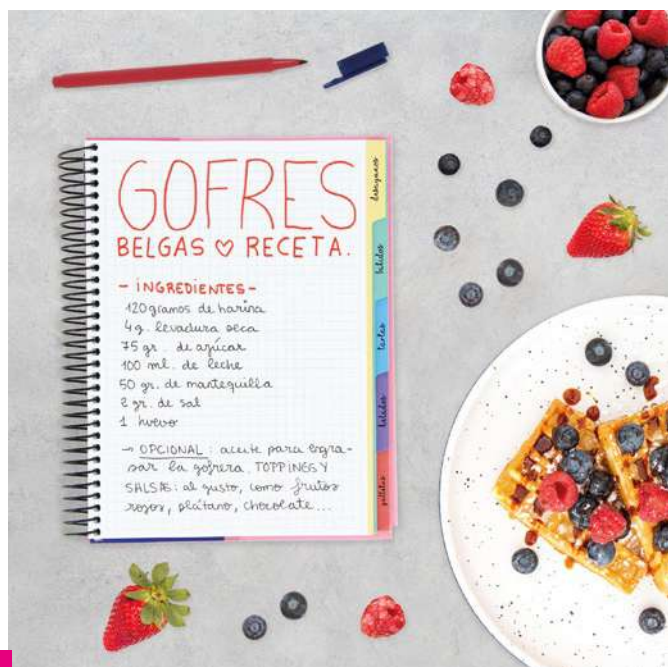 GOFRES
BELGAS ♡ RECETA.
- iNGREDIENTES -
120 gramos de harina
4 g. levadura seca
75 gr. de azúcar
100 ml. de leche
50 gr. de mantequilla
2 gr. de sal
1 huevo
→ OPCIONAL: aceite para engra-
sar la gofrera. TOPPINGS Y
SALSAS: al gusto, como frutos
rojos, plátano, chocolate...
desayunos
batidos
tartas
batidos
galletas